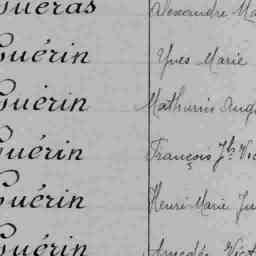 Guéras Alexandre Ma
Guérin Yves Marie
Guérin Mathurin Aug
Guérin François Jh Vic
Guérin Henri Marie Ju
Guérin Amédée Vict